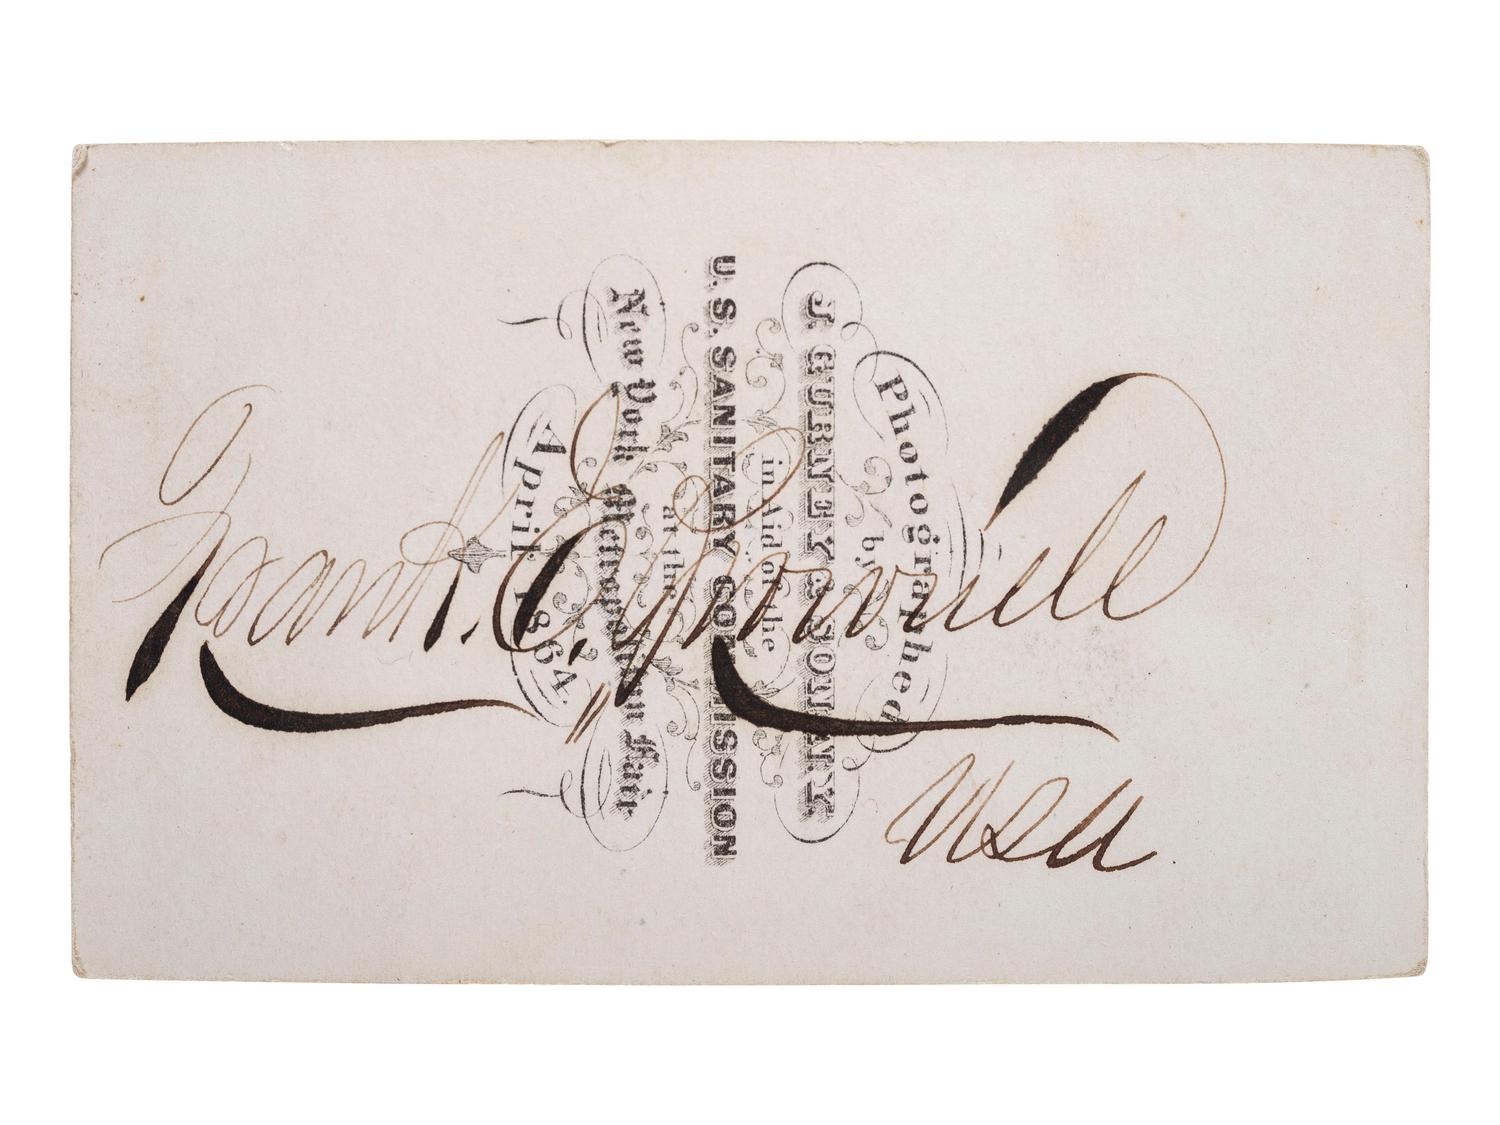 Photographed
by
J. GURNEY & SON, N.Y.
in Aid of the
U. S. SANITARY COMMISSION
at the
New York Metropolitan Fair
April 1864
Frank E. Howe
USA